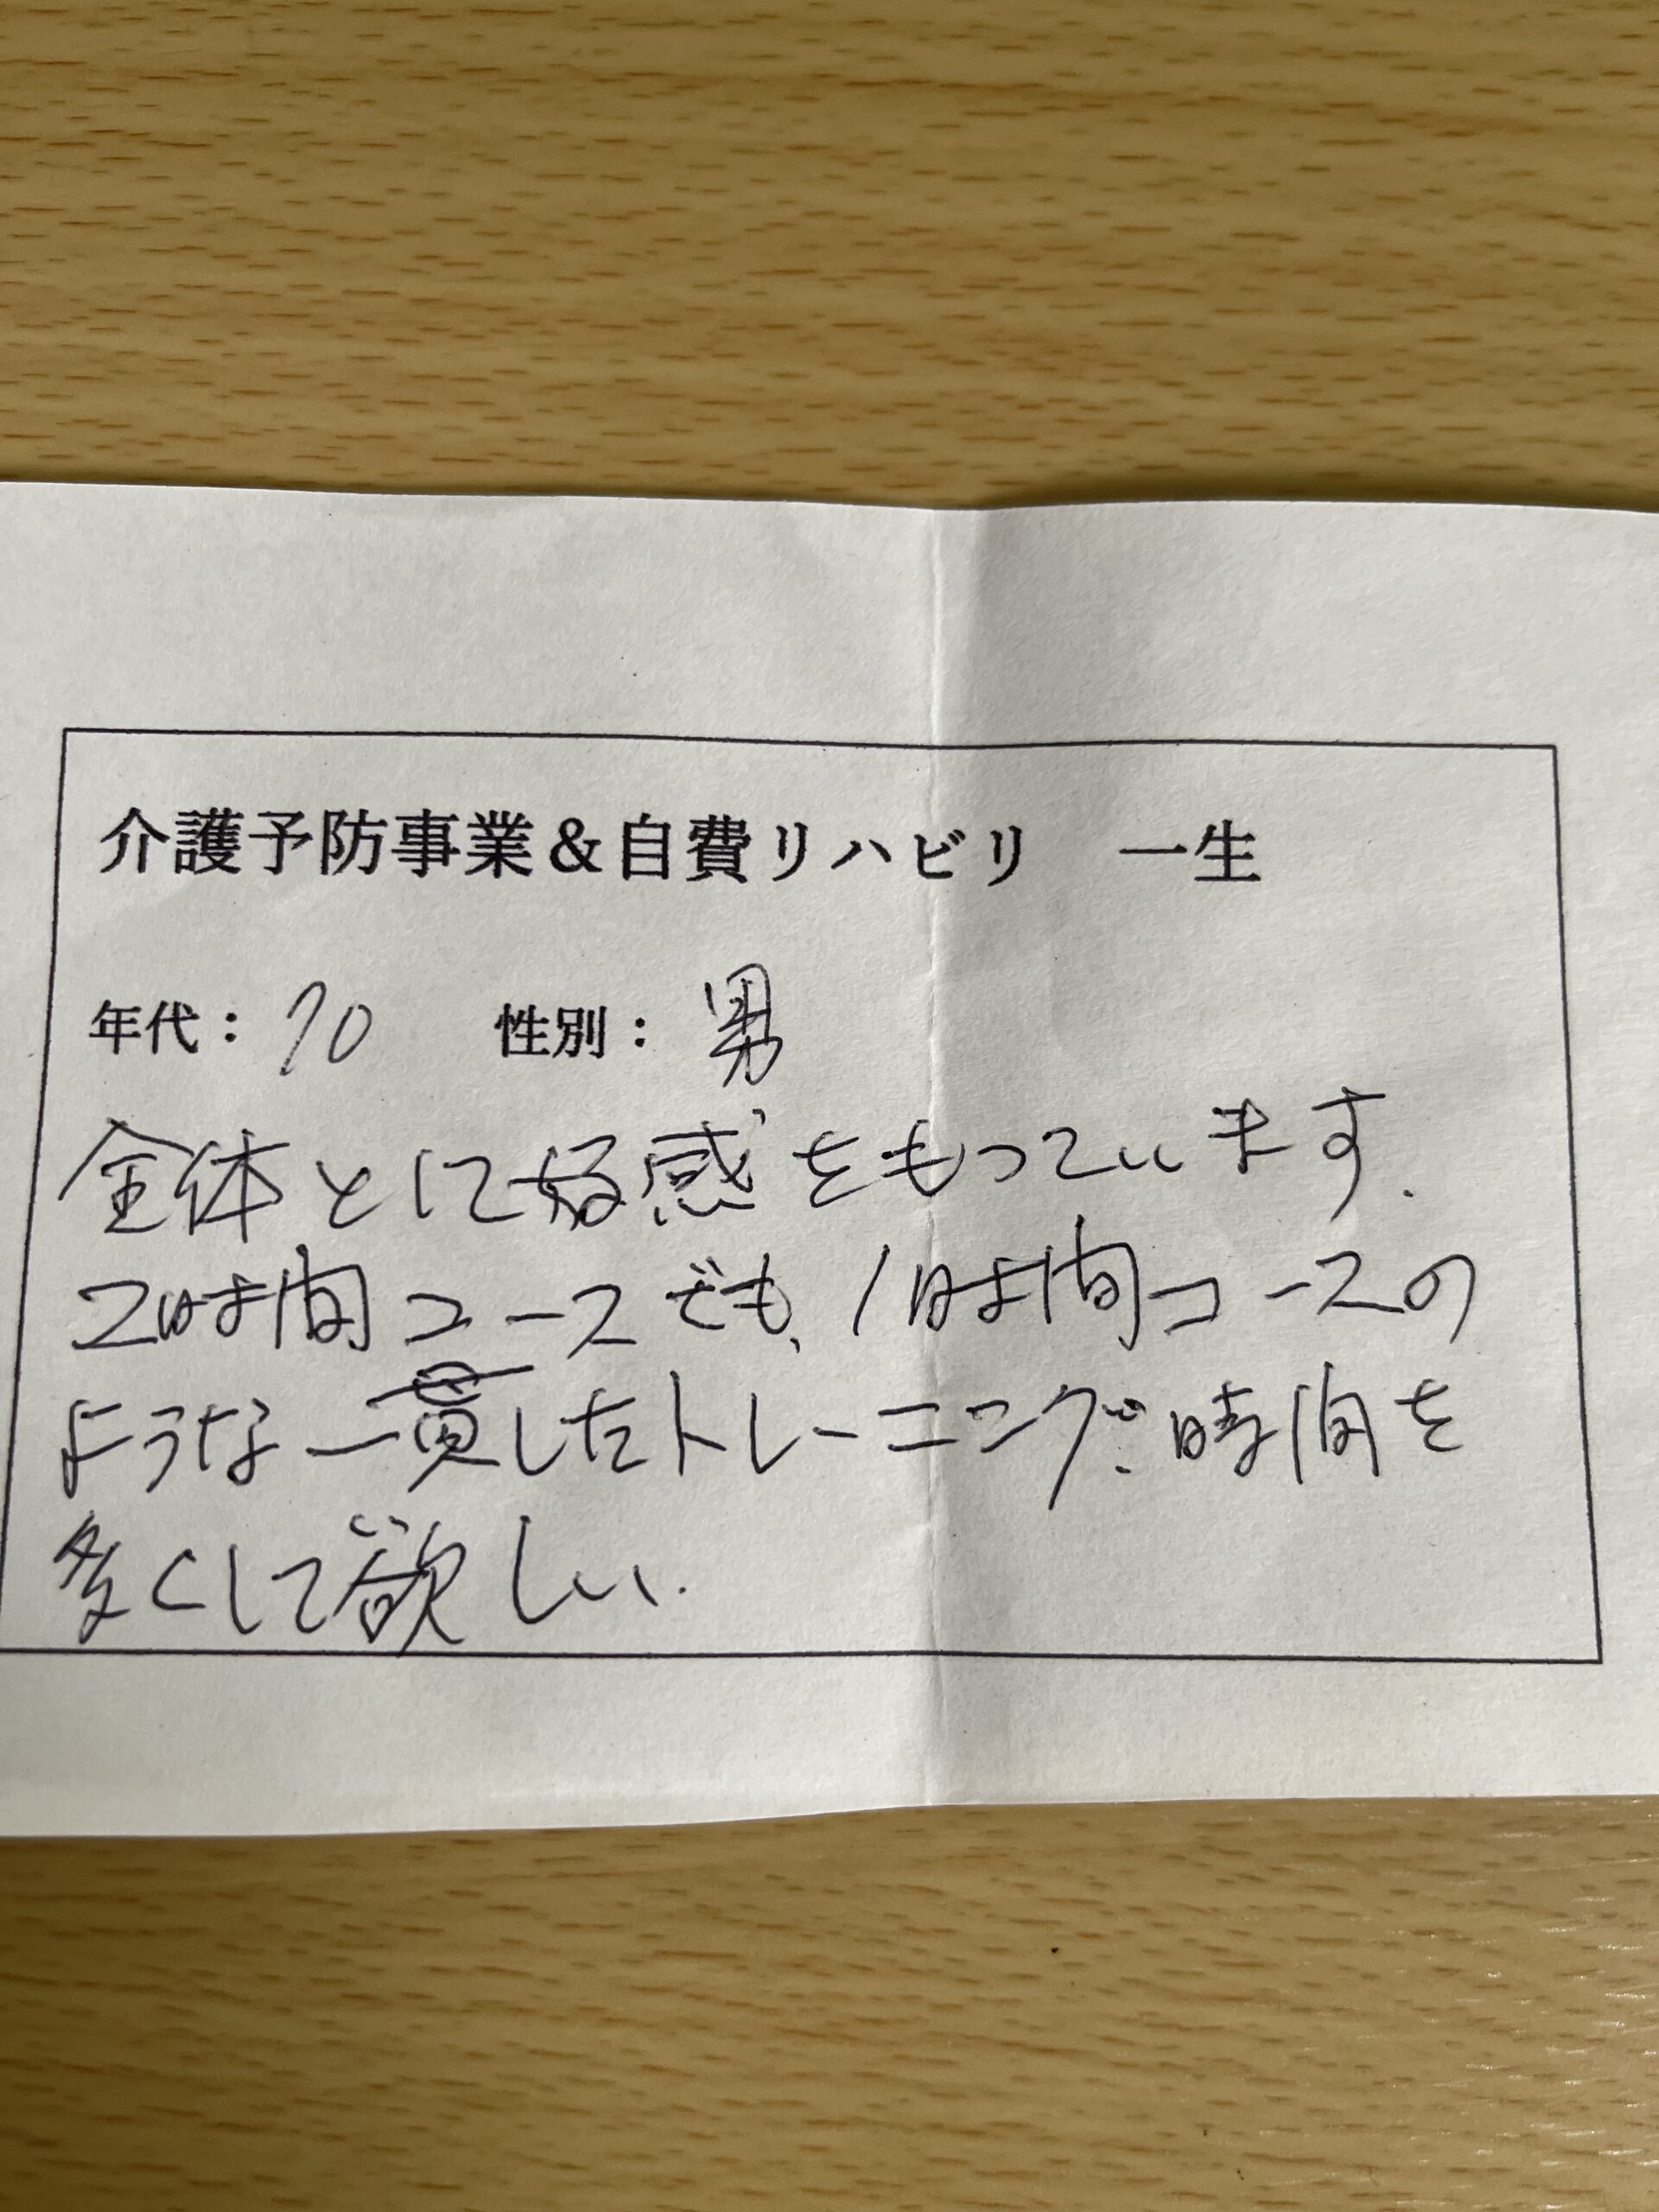 介護予防事業&自費リハビリ　一生
年代：70　性別：男
全体とに好感をもっています.
2時間コースでも、1時間コースの
ような一貫したトレーニング時間を
多くして欲しい.